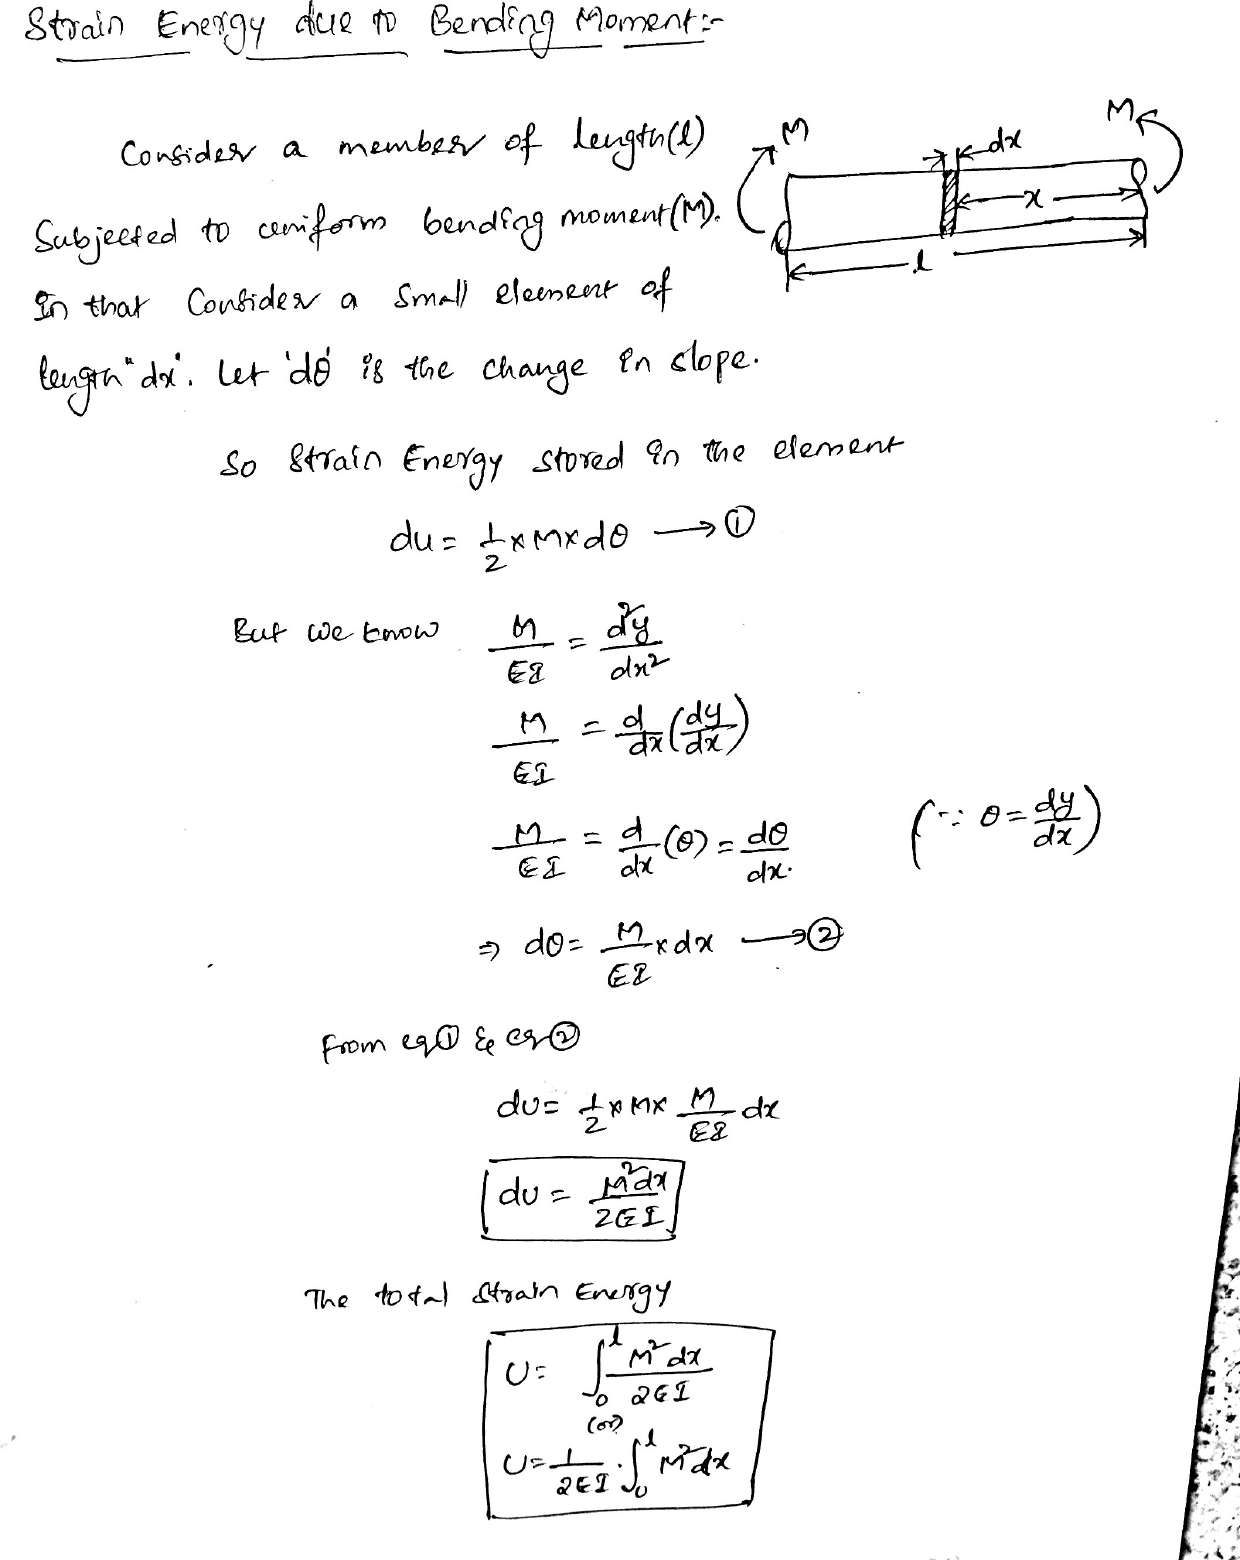 Strain Energy due to Bending Moment:-
Consider a member of length(l)
Subjected to uniform bending moment(M).
In that Consider a Small element of
length "dx". Let 'dθ' is the change in slope.
M M
dx
x
l
So Strain Energy stored in the element
du = 1/2 × M × dθ → ①
But we know M/EI = d²y/dx²
M/EI = d/dx (dy/dx)
M/EI = d/dx (θ) = dθ/dx. (∵ θ = dy/dx)
⇒ dθ = M/EI × dx → ②
From eq① & eq②
du = 1/2 × M × M/EI dx
du = M²dx/2EI
The total Strain Energy
U = ∫₀ˡ M²dx/2EI
(or)
U = 1/2EI · ∫₀ˡ M²dx